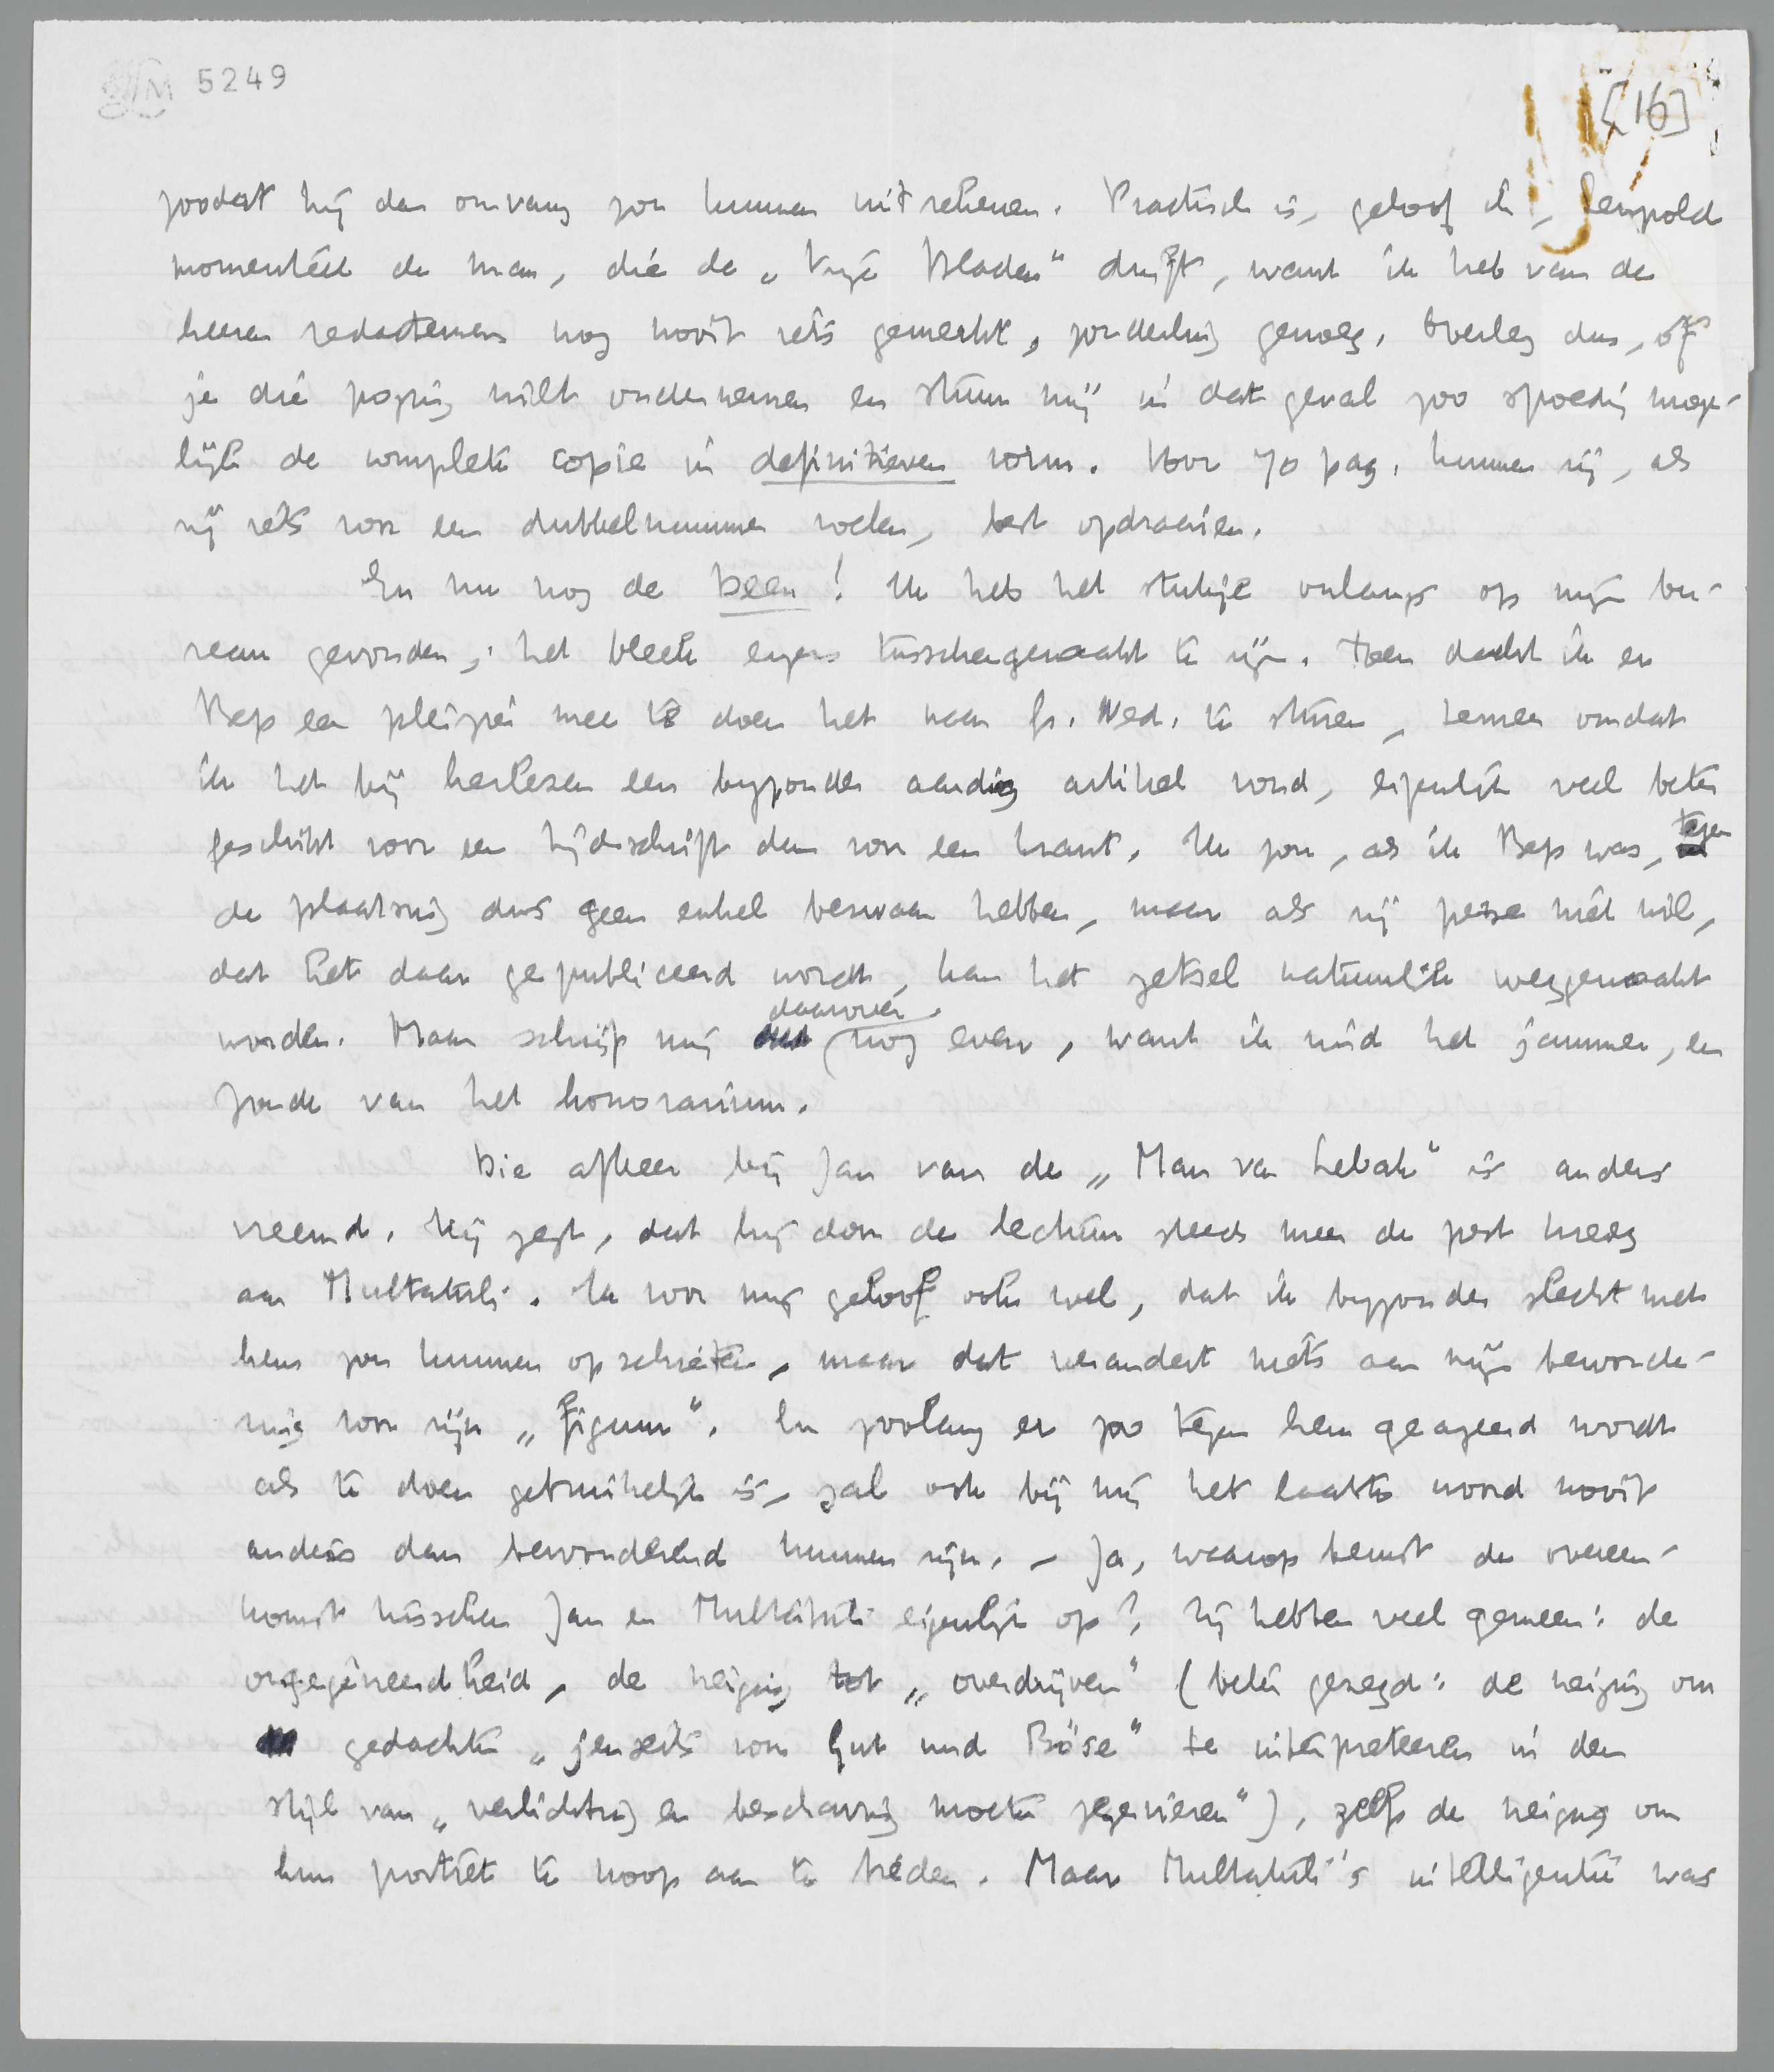 5249
[16]
zoodat hij den omvang zou kunnen uitrekenen. Practisch is, geloof ik, Leopold
momenteel de man, die de „Vrije Bladen" drijft, want ik heb van de
heeren redacteuren nog nooit iets gemerkt, zonderling genoeg. Overleg dus, of
je die poging wilt ondernemen en stuur mij in dat geval zoo spoedig moge-
lijk de complete copie in definitieven vorm. Voor 70 pag. kunnen zij, als
zij iets voor een dubbelnummer voelen, best opdraaien.
En nu nog de Been! Ik heb het stukje onlangs op mijn bu-
reau gevonden; het bleek ergens tusschengeraakt te zijn. Toen dacht ik er
Bep een pleizier mee te doen het naar Gr. Ned. te sturen, temeer omdat
ik het bij herlezen een byzonder aardig artikel vond, eigenlijk veel beter
geschikt voor een tijdschrift dan voor een krant. Ik zou, als ik Bep was, tegen
de plaatsing dus geen enkel bezwaar hebben, maar als zij perse niet wil,
dat het daar gepubliceerd wordt, kan het zetsel natuurlijk weggemaakt
worden. Maar schrijf mij daarover nog even, want ik vind het jammer, en
zonde van het honorarium.
Die afkeer bij Jan van de „Man van Lebak" is anders
vreemd. Hij zegt, dat hij door de lectuur steeds meer de pest kreeg
aan Multatuli. Ik voor mij geloof ook wel, dat ik byzonder slecht met
hem zou kunnen opschieten, maar dat verandert niets aan mijn bewonde-
ring voor zijn „figuur". En zoolang er zoo tegen hem geageerd wordt
als te doen gebruikelijk is, zal ook bij mij het laatste woord nooit
anders dan bewonderend kunnen zijn. – Ja, waarop berust de overeen-
komst tusschen Jan en Multatuli eigenlijk op? Zij hebben veel gemeen: de
ongegeneerdheid, de neiging tot „overdrijven" (beter gezegd: de neiging om
gedachten „jenseits von Gut und Böse" te interpreteeren in den
stijl van „verlichting en beschaving moeten zegevieren"), zelfs de neiging om
hun portret te koop aan te bieden. Maar Multatuli's intelligentie was